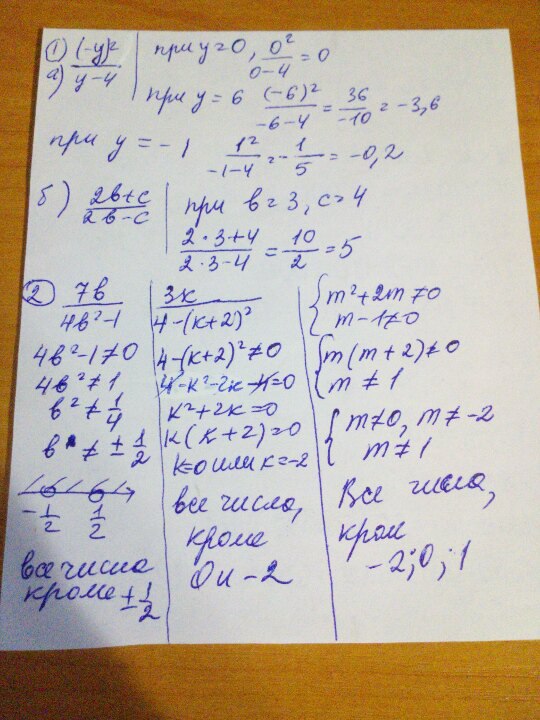 ① (-y)² / y-4
а)
при y=0, 0² / 0-4 = 0
при y = 6 (-6)² / -6-4 = 36 / -10 = -3,6
при y = -1 1² / -1-4 = - 1/5 = -0,2
б) 2в+с / 2в-с
при в=3, с=4
2·3+4 / 2·3-4 = 10/2 = 5
② 7в / 4в²-1
4в²-1≠0
4в²≠1
в²≠ 1/4
в ≠ ± 1/2
-1/2 1/2
все числа
кроме ± 1/2
3к / 4-(к+2)²
4-(к+2)²≠0
4-к²-2к-4=0
к²+2к=0
к(к+2)=0
к=0 или к=-2
все числа,
кроме
0 и -2
{ m²+2m≠0
m-1≠0
{ m(m+2)≠0
m ≠ 1
{ m≠0, m≠-2
m≠1
Все числа,
кром
-2; 0; 1